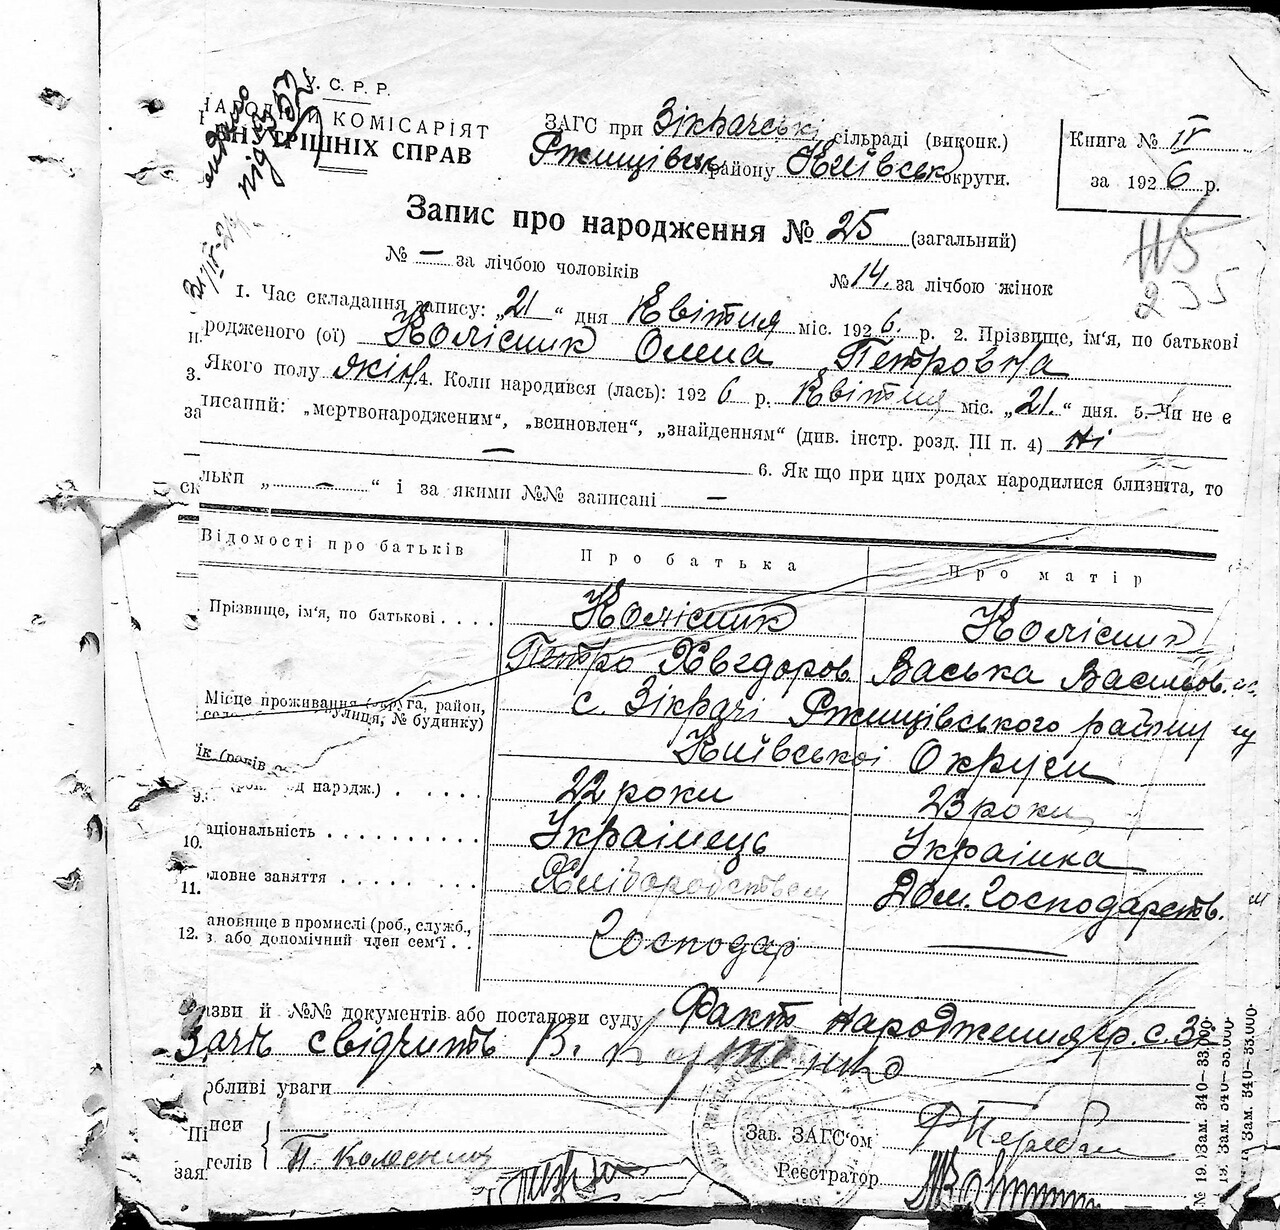 У.С.Р.Р.
НАРОДНІЙ КОМІСАРІЯТ
ВНУТРІШНІХ СПРАВ
ЗАГС при Зікрачські сільраді (виконк.)
Ржищівськ району Київськ округи.
Книга № IV
за 1926 р.
Запис про народження № 25 (загальний)
№ — за лічбою чоловіків
№ 14. за лічбою жінок
115
235
1. Час складання запису: „21“ дня Квітня міс. 1926. р. 2. Прізвище, ім'я, по батькові
н. родженого (ої) Колісник Олена Петровна
3. Якого полу жін. 4. Коли народився (лась): 1926 р. Квітня міс. „21.“ дня. 5. Чи не є
за писаний: „мертвонародженим“, „всиновлен“, „знайденням“ (див. інстр. розд. III п. 4) Ні
— 6. Як що при цих родах народилися близнята, то
ск льки „ — “ і за якими №№ записані —
Відомості про батьків
Про батька
Про матір
Прізвище, ім'я, по батькові
Колісник
Колісник
Петро Хведоров.
Васька Васильов.
Місце проживання (округа, район,
вулиця, № будинку)
с. Зікрачі Ржищівського району
Київської Округи
9. народж.)
22 роки
23 роки
10. аціональність
Українець
Українка
11. ловне заняття
Хліборобством
Дом. Господарств.
12. ановище в промислі (роб., служб.,
або допомічний член сем'ї
Господар
—
азви й №№ документів або постанови суду Факт народження гр. с. Зі
свідчить В.
обливі уваги
Пі дписи
зая телів
П. Колесник
Зав. ЗАГС'ом
Реєстратор
№ 19. Зам. 340—33.000